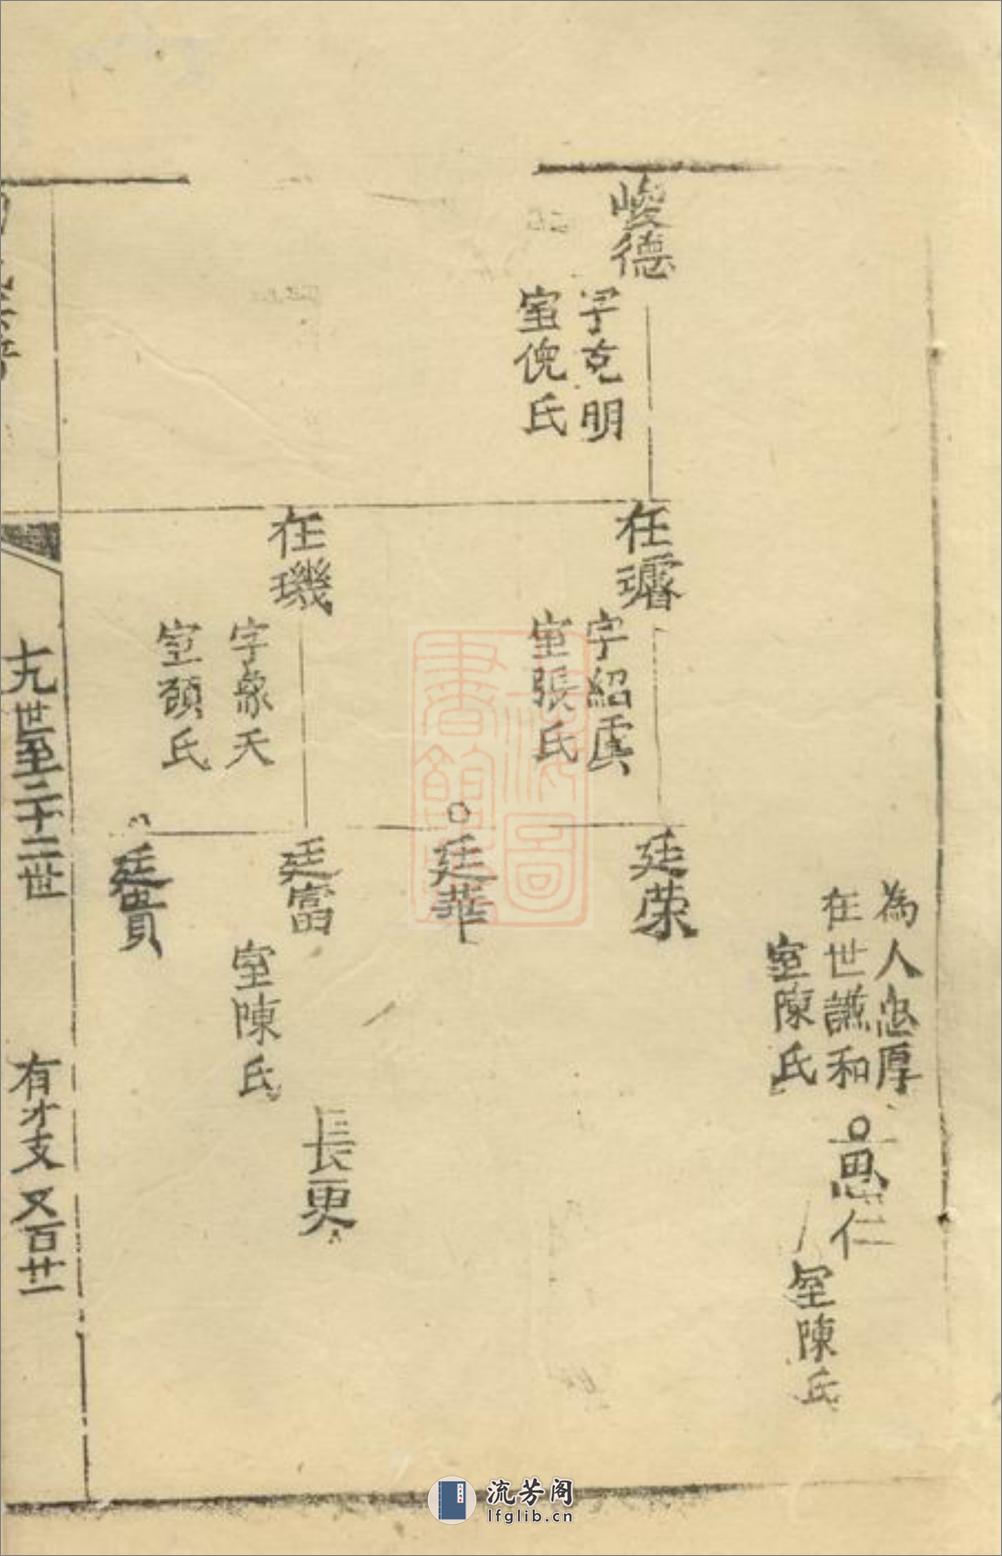 為人忠厚
在世謙和
室陳氏
思仁
室陳氏
峻德
字克明
室倪氏
在璿
字紹虞
室張氏
廷荣
廷華
在璣
字象天
室顔氏
廷富
室陳氏
長更
廷貴
十九世至二十二世
有才支 又百廿一
上海圖書館藏
流芳阁
lfglib.cn